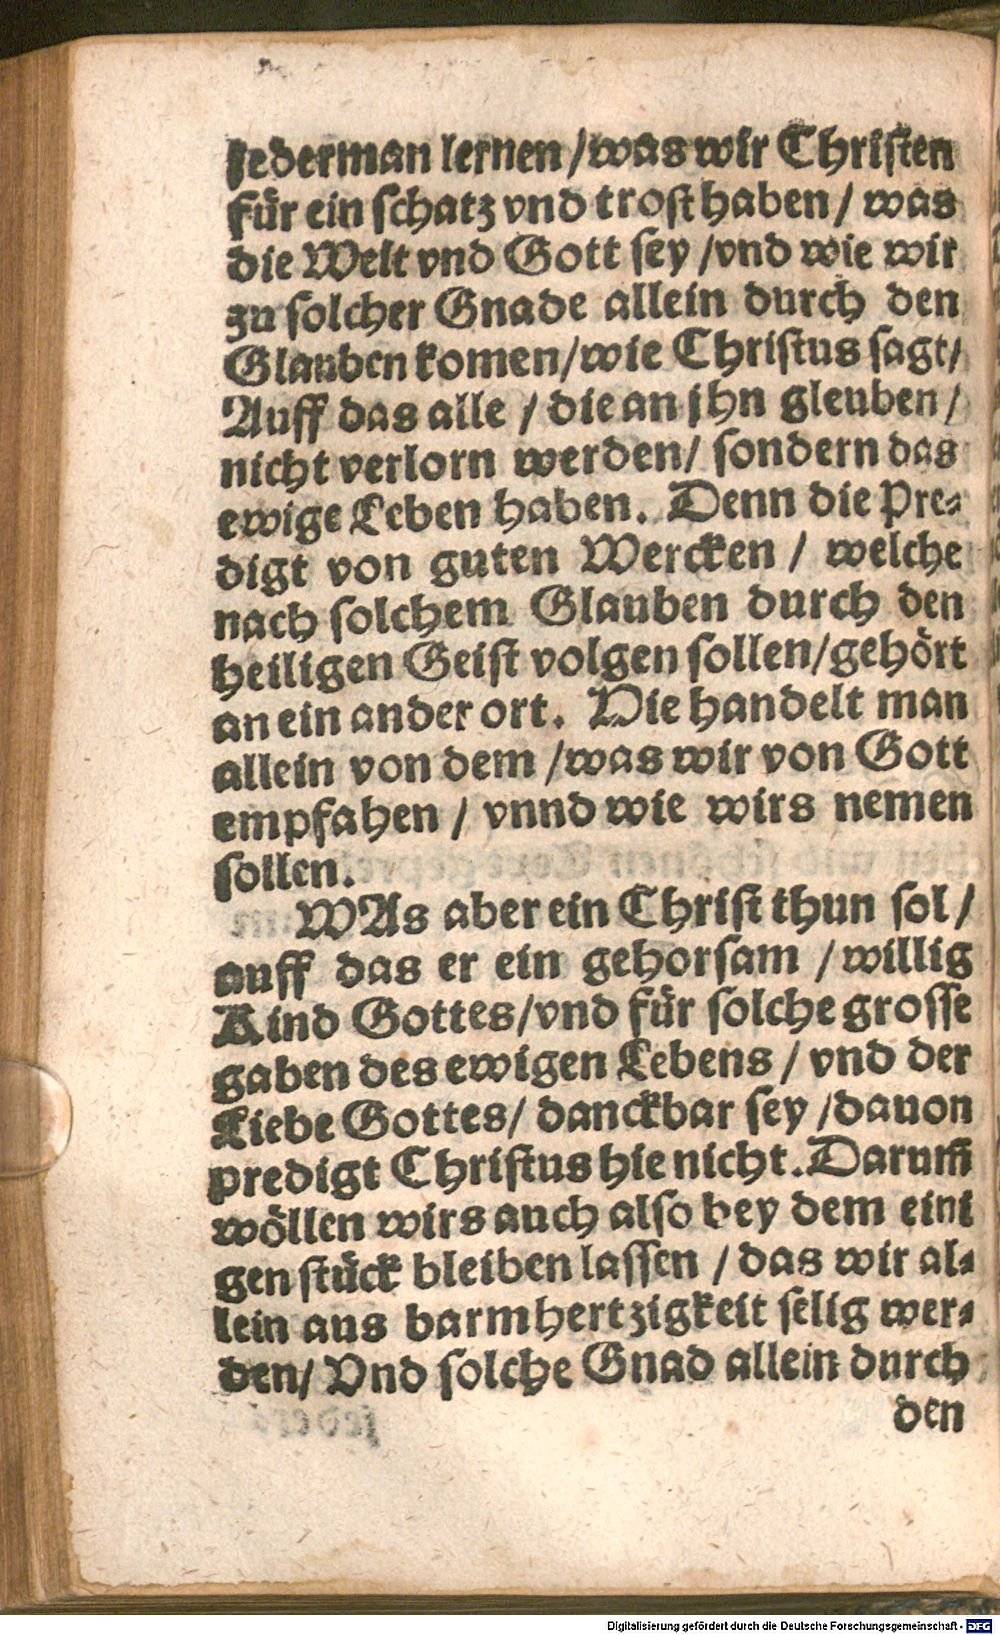 jederman lernen / was wir Christen
für ein schatz vnd trost haben / was
die Welt vnd Gott sey / vnd wie wir
zu solcher Gnade allein durch den
Glauben komen / wie Christus sagt /
Auff das alle / die an jhn gleuben /
nicht verlorn werden / sondern das
ewige Leben haben. Denn die Pre-
digt von guten Wercken / welche
nach solchem Glauben durch den
heiligen Geist volgen sollen / gehört
an ein ander ort. Hie handelt man
allein von dem / was wir von Gott
empfahen / vnnd wie wirs nemen
sollen.
WAs aber ein Christ thun sol /
auff das er ein gehorsam / willig
Kind Gottes / vnd für solche grosse
gaben des ewigen Lebens / vnd der
Liebe Gottes / danckbar sey / dauon
predigt Christus hie nicht. Darum̃
wöllen wirs auch also bey dem eini
gen stück bleiben lassen / das wir al-
lein aus barmhertzigkeit selig wer-
den / Vnd solche Gnad allein durch
den
Digitalisierung gefördert durch die Deutsche Forschungsgemeinschaft - DFG